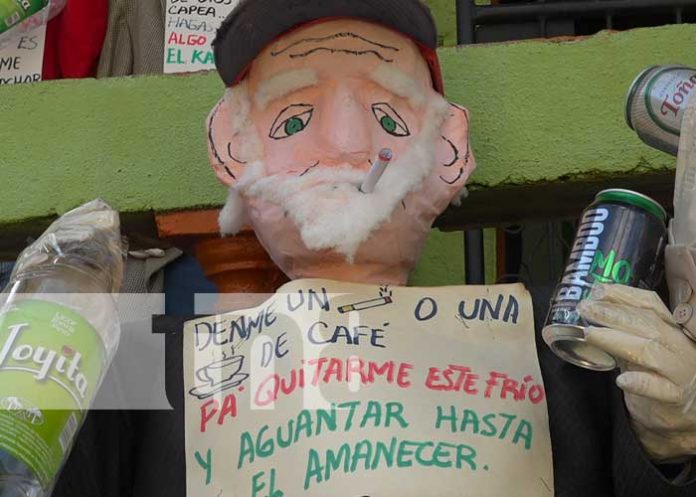 CAPEA.
HAGAS
ALGO
EL KA
ES
ME
CHAR
Toña
BAMBOO
MO
Joyita
DENME UN O UNA
DE CAFÉ
PA' QUITARME ESTE FRÍO
Y AGUANTAR HASTA
EL AMANECER.
tn8